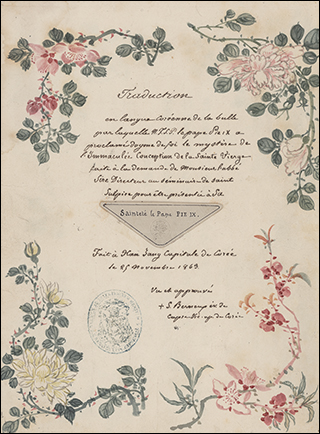 Traduction
en langue Coréenne de la bulle
par laquelle N.T.S.P. le pape Pie IX a
proclamé dogme de foi le mystère de
l'Immaculée Conception de la Sainte Vierge
faite à la demande de Monsieur l'abbé
Sire Directeur au séminaire de Saint
Sulpice pour être présentée à Sa
Sainteté le Pape PIE IX.
Fait à Han Yang Capitale de Corée
le 25 Novembre 1863.
Vu et approuvé
+ S. Berneux év. de
Capse Vic. ap. de Corée